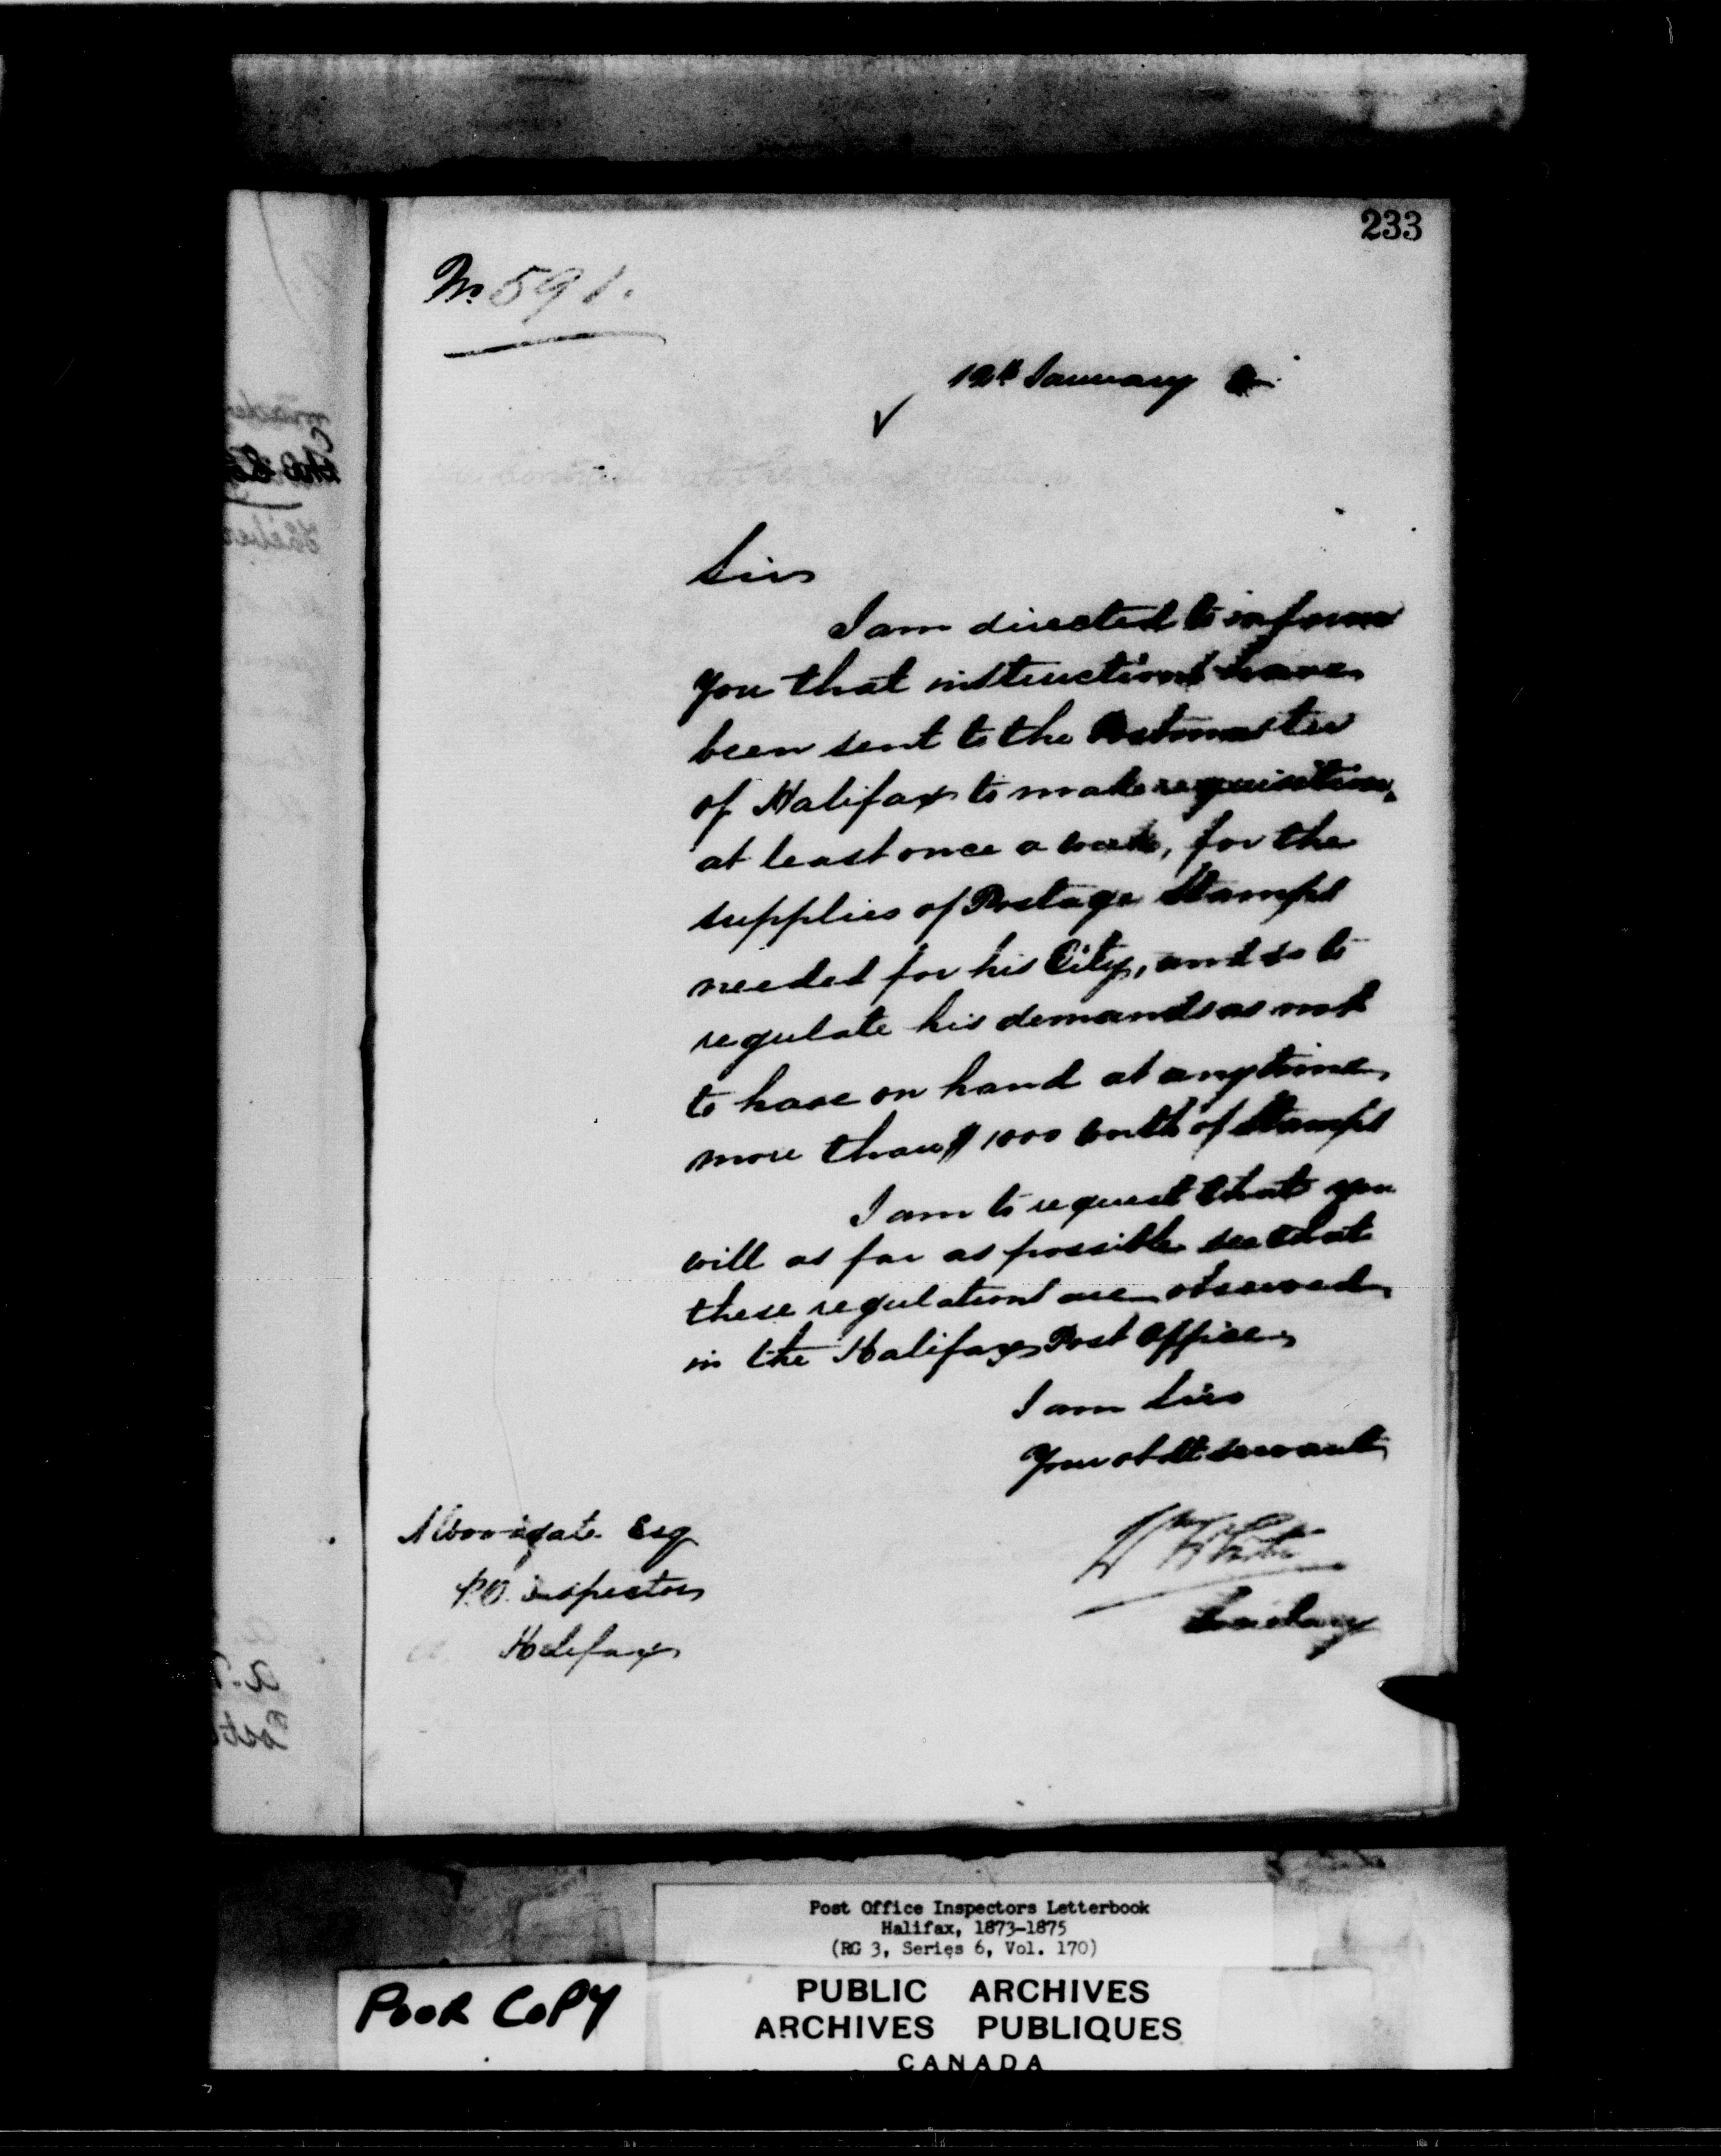 233
No 591.
12th January
Sir
I am directed to inform
you that instructions have
been sent to the Postmaster
of Halifax to make requisition,
at least once a week, for the
supplies of Postage Stamps
needed for his City, and so to
regulate his demands as not
to have on hand at any time
more than $1000 worth of Stamps
I am to request that you
will as far as possible see that
these regulations are observed
in the Halifax Post Office
I am Sir
Your obdt servant
Wm White
Secretary
A Woodgate Esq
P.O. Inspector
Halifax
Post Office Inspectors Letterbook
Halifax, 1873-1875
(RG 3, Series 6, Vol. 170)
POOR COPY
PUBLIC ARCHIVES
ARCHIVES PUBLIQUES
CANADA